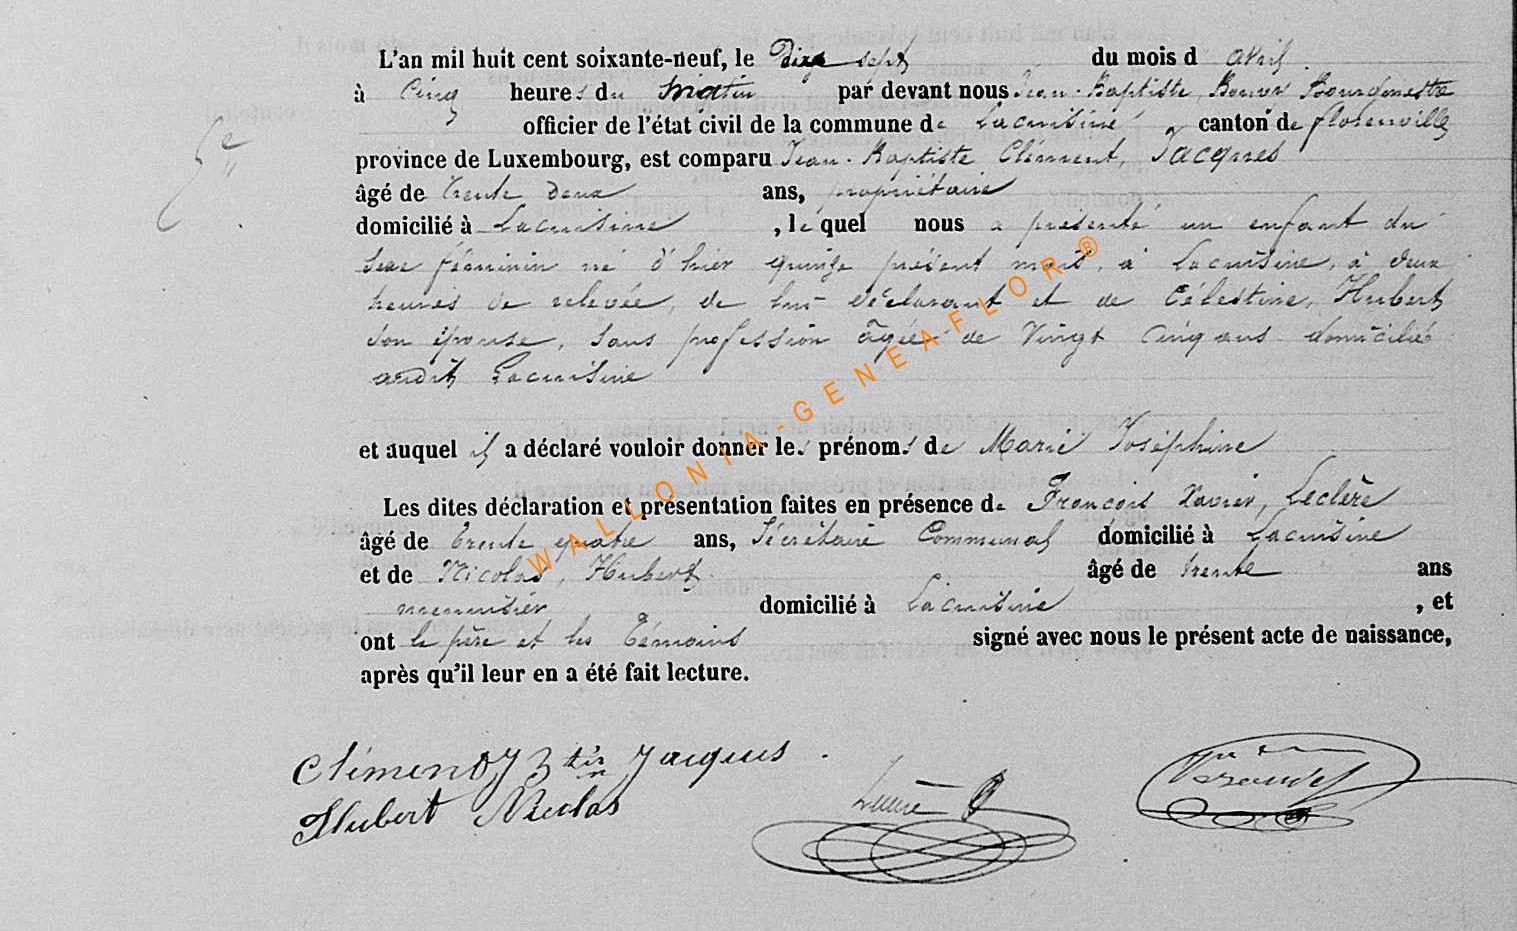 L'an mil huit cent soixante-neuf, le Dix sept du mois d avril
à Cinq heures du matin par devant nous Jean-Baptiste, Bourgmestre
officier de l'état civil de la commune de Lacuisine canton de florenville
province de Luxembourg, est comparu Jean-Baptiste Clément, Jacques
âgé de trente deux ans, propriétaire
domicilié à Lacuisine , le quel nous a présenté un enfant du
Sexe féminin né d'hier quinze présent mois, à Lacuisine, à deux
heures de relevée, de lui déclarant et de Célestine, Hubert
Son épouse, Sans profession âgée de Vingt Cinq ans domiciliée
audit Lacuisine
et auquel il a déclaré vouloir donner les prénoms de Marie Joséphine
Les dites déclaration et présentation faites en présence de François Xavier, Leclère
âgé de trente quatre ans, Sécrétaire Communal domicilié à Lacuisine
et de Nicolas, Hubert âgé de trente ans
menuisier domicilié à Lacuisine , et
ont le père et les témoins signé avec nous le présent acte de naissance,
après qu'il leur en a été fait lecture.
Clément J Btin Jacques
Hubert Nicolas
WALLONIA-GENEAFLOR®